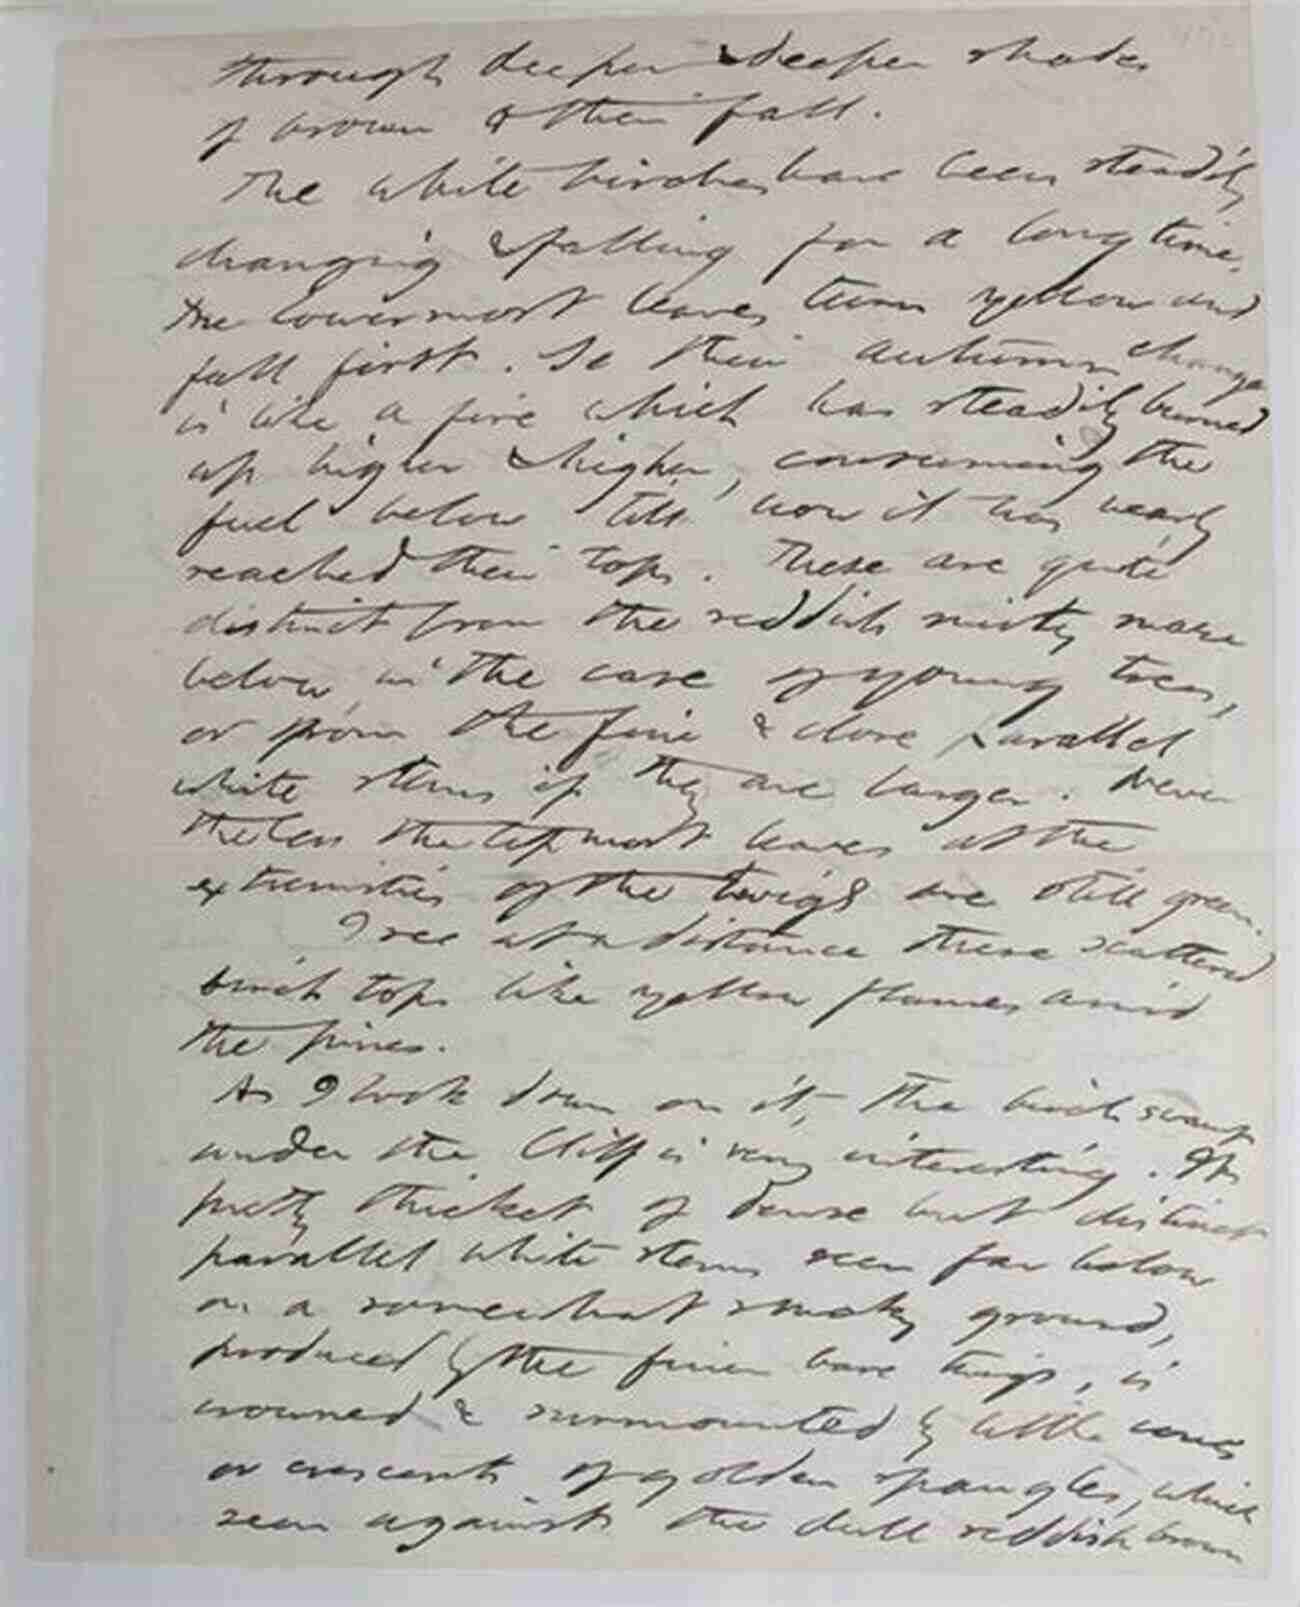 through deeper & deeper shades
of brown & then fall.
The white birches have been steadily
changing & falling for a long time,
the lowermost leaves turn yellow and
fall first. So their autumn change
is like a fire which has steadily burned
up higher & higher, consuming the
fuel below till now it has nearly
reached their tops. These are quite
distinct from the reddish misty maze
below, in the case of young trees,
or from the fine & close parallel
white stems if they are larger. Never
theless the topmost leaves at the
extremities of the twigs are still green.
I see at a distance these scattered
birch tops like yellow flames amid
the pines.
As I look down on it, the birch swamp
under the Cliff is very interesting. Its
pretty thicket of dense but distinct
parallel white stems seen far below
on a somewhat smoky ground,
produced by the finer bare twigs, is
crowned & surmounted by little cones
or crescents of golden spangles, which
seen against the dull reddish brown